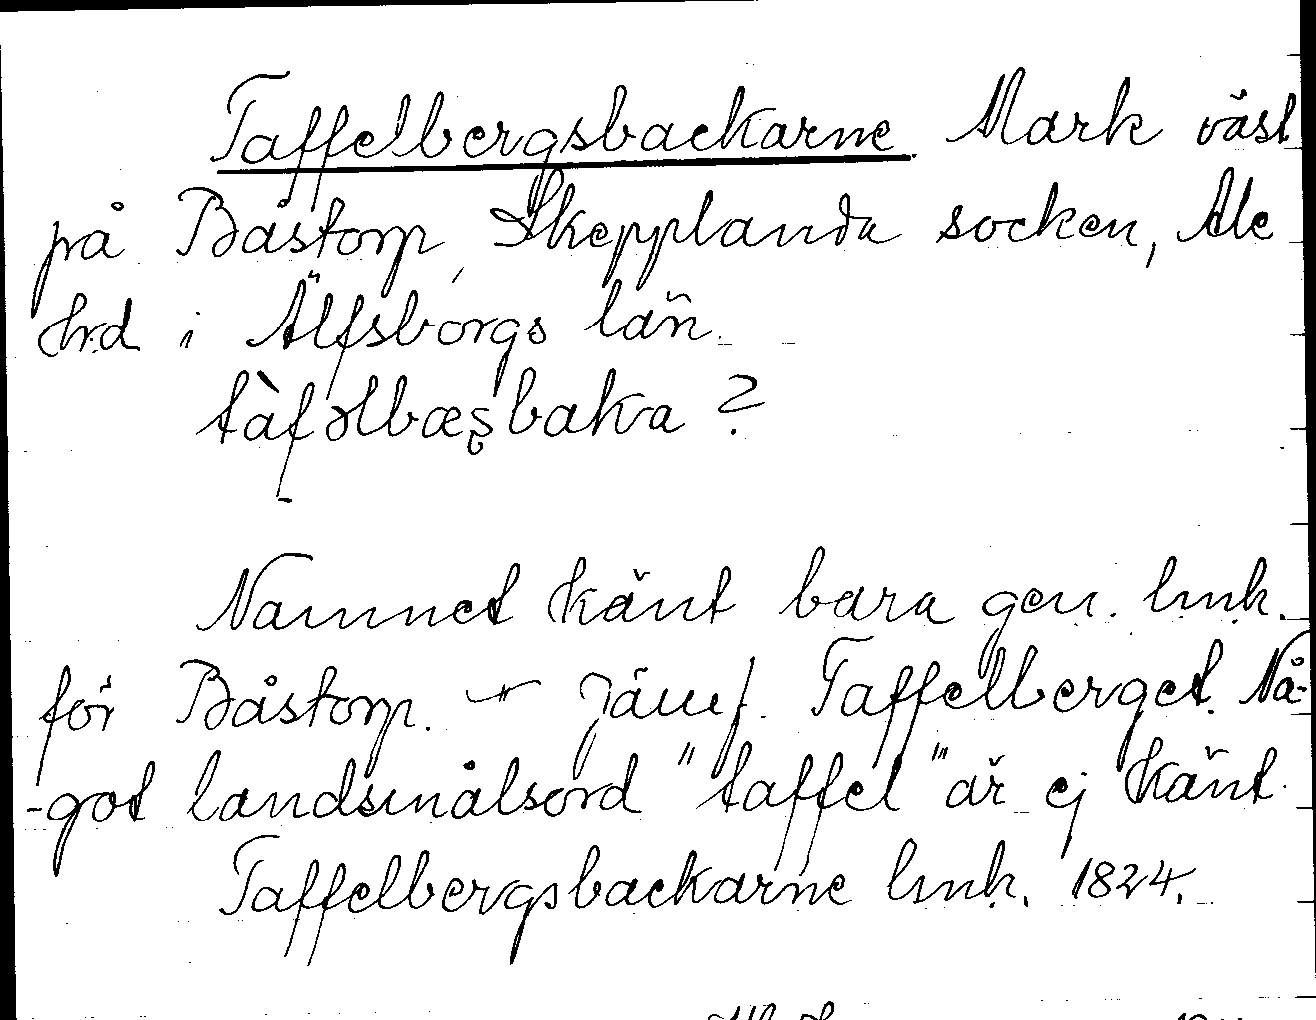 Taffelbergsbackarne. Mark väst
på Båstorp, Skepplanda socken, Ale
hrd i Älfsborgs län.
tàfəlbæʂbaka ?
Namnet känt bara gen. lmh.
för Båstorp. — Jämf. Taffelberget. Nå-
-got landsmålsord "taffel" är ej känt.
Taffelbergsbackarne lmh. 1824.